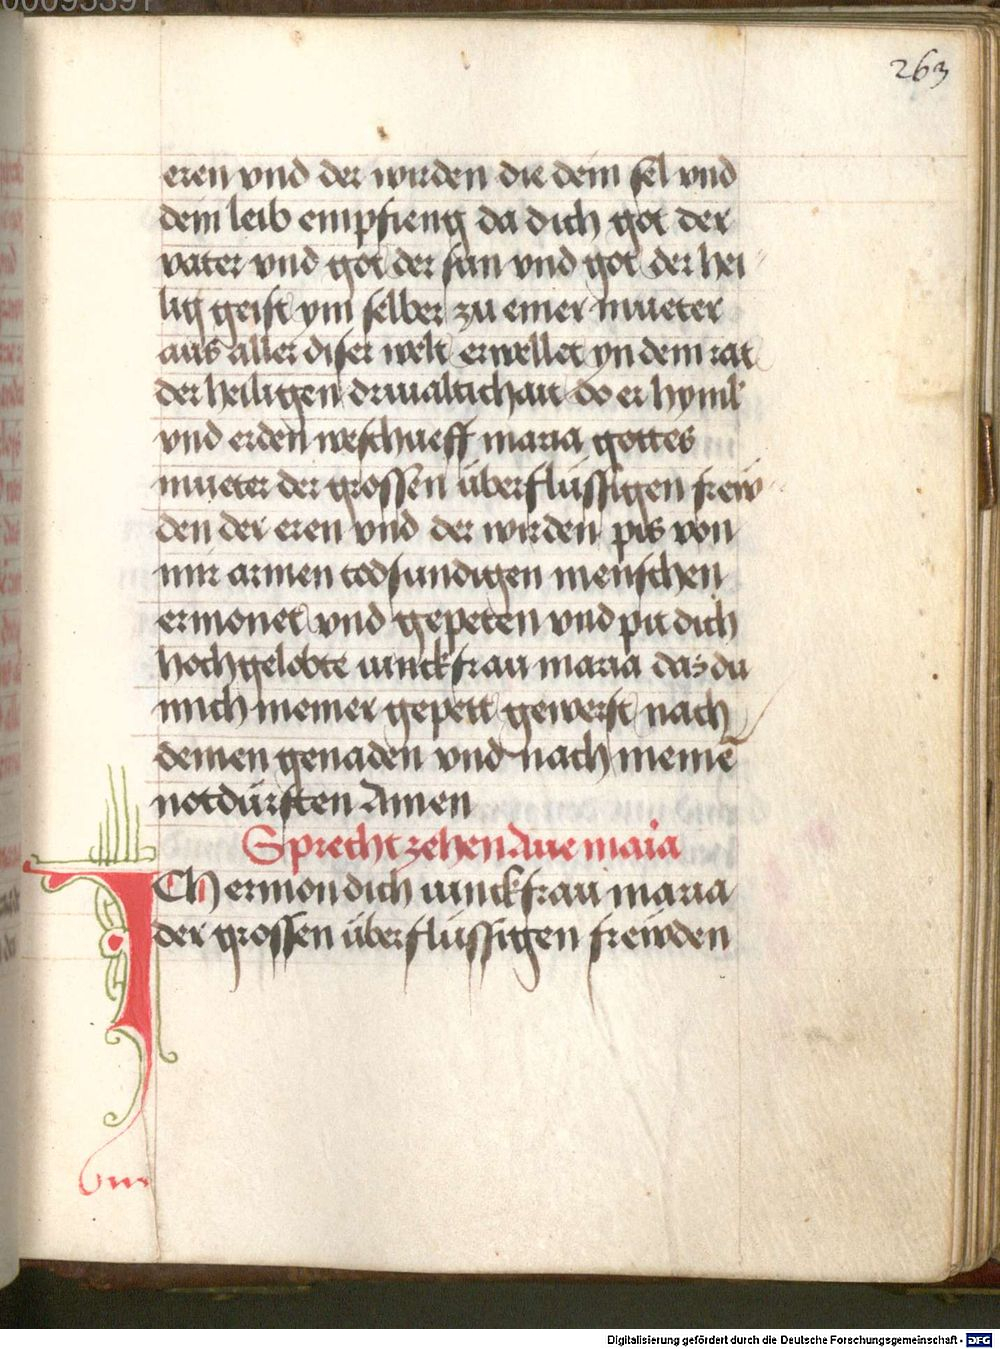 263
eren vnd der wirden die dein sel vnd
dein leib empfieng da dich got der
vater vnd got der sun vnd got der hei
lig geist ym selber zu einer mueter
aus aller diser welt erwellet yn dem rat
der heiligen driualtichait do er hyml
vnd erden weschueff maria gottes
mueter der grossen überflüssigen frew
den der eren vnd der wirden pis von
mir armen todsundigen menschen
ermonet vnd gepeten vnd pit dich
hochgelobte iunckfrau maria das du
mich meiner gepett gewerst nach
deinen genaden vnd nach meinē
notdürften Amen
Sprecht zehen Aue maria
ICh ermon dich iunckfrau maria
der grossen überflüssigen freẅden
Digitalisierung gefördert durch die Deutsche Forschungsgemeinschaft - DFG